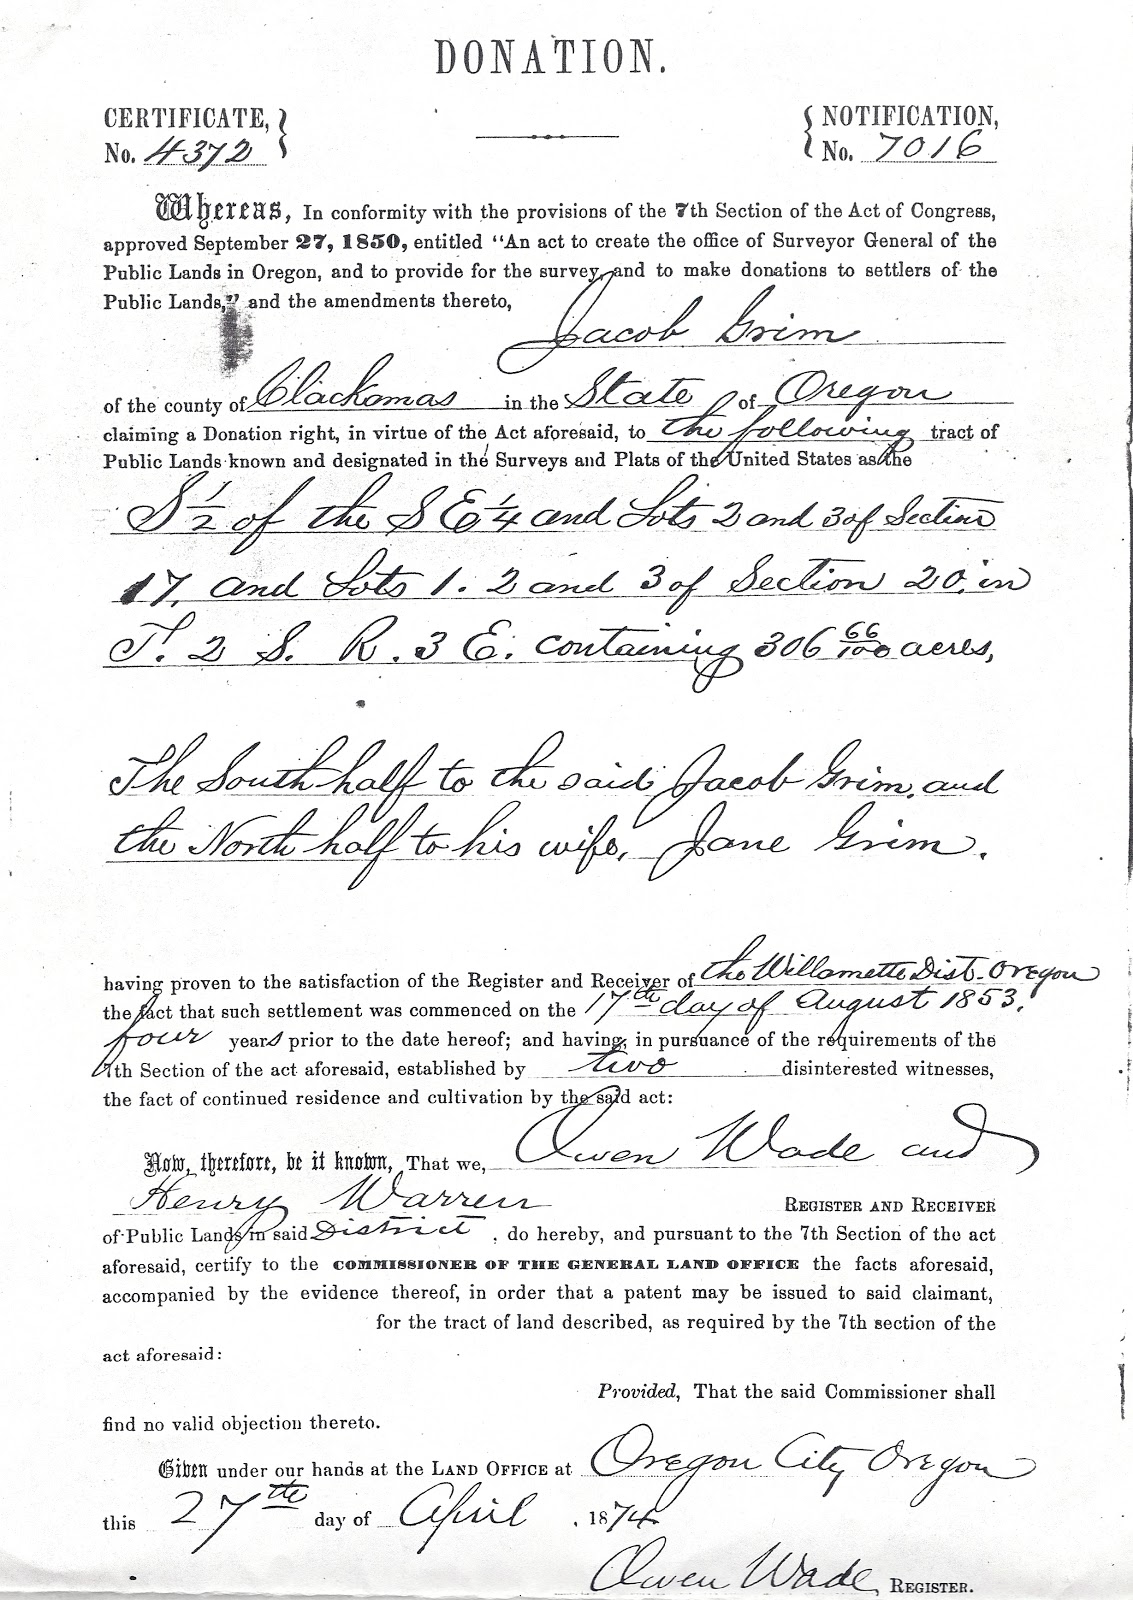 DONATION.
CERTIFICATE,
No. 4372
NOTIFICATION,
No. 7016
Whereas, In conformity with the provisions of the 7th Section of the Act of Congress,
approved September 27, 1850, entitled "An act to create the office of Surveyor General of the
Public Lands in Oregon, and to provide for the survey, and to make donations to settlers of the
Public Lands," and the amendments thereto,
Jacob Grim
of the county of Clackamas in the State of Oregon
claiming a Donation right, in virtue of the Act aforesaid, to the following tract of
Public Lands known and designated in the Surveys and Plats of the United States as the
S 1/2 of the S E 1/4 and Lots 2 and 3 of Section
17, and Lots 1. 2 and 3 of Section 20, in
T. 2 S. R. 3 E. containing 306 66/100 acres,
The South half to the said Jacob Grim, and
the North half to his wife, Jane Grim.
having proven to the satisfaction of the Register and Receiver of the Willamette Dist. Oregon
the fact that such settlement was commenced on the 17th day of August 1853.
four years prior to the date hereof; and having, in pursuance of the requirements of the
7th Section of the act aforesaid, established by two disinterested witnesses,
the fact of continued residence and cultivation by the said act:
Now, therefore, be it known, That we, Owen Wade and
Henry Warren REGISTER AND RECEIVER
of Public Lands in said District, do hereby, and pursuant to the 7th Section of the act
aforesaid, certify to the COMMISSIONER OF THE GENERAL LAND OFFICE the facts aforesaid,
accompanied by the evidence thereof, in order that a patent may be issued to said claimant,
for the tract of land described, as required by the 7th section of the
act aforesaid:
Provided, That the said Commissioner shall
find no valid objection thereto.
Given under our hands at the LAND OFFICE at Oregon City Oregon
this 27th day of April, 1874
Owen Wade, REGISTER.